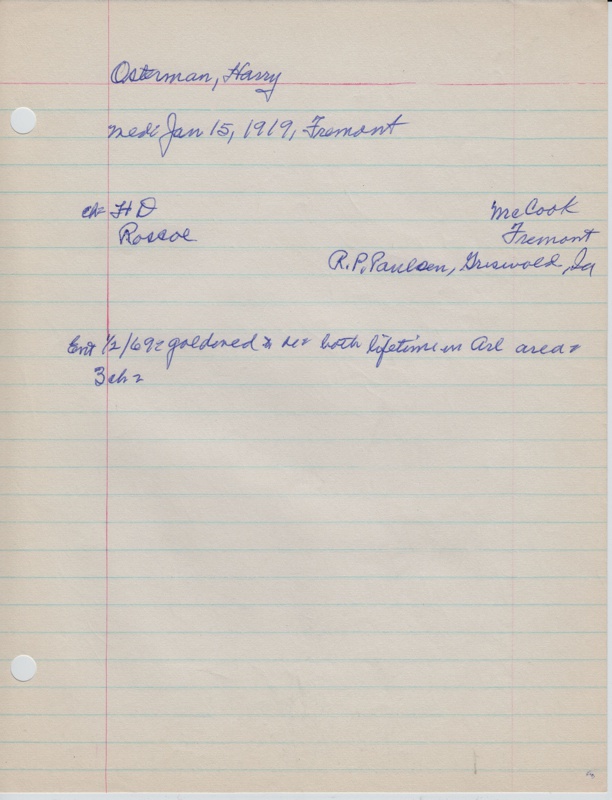 Osterman, Harry
med= Jan 15, 1919, Fremont
ch= H D McCook
Roscoe Fremont
R.P. Paulsen, Griswold, Ia
Ent 1/2/69= goldwed = both lifetime in Arl area=
3 ch=